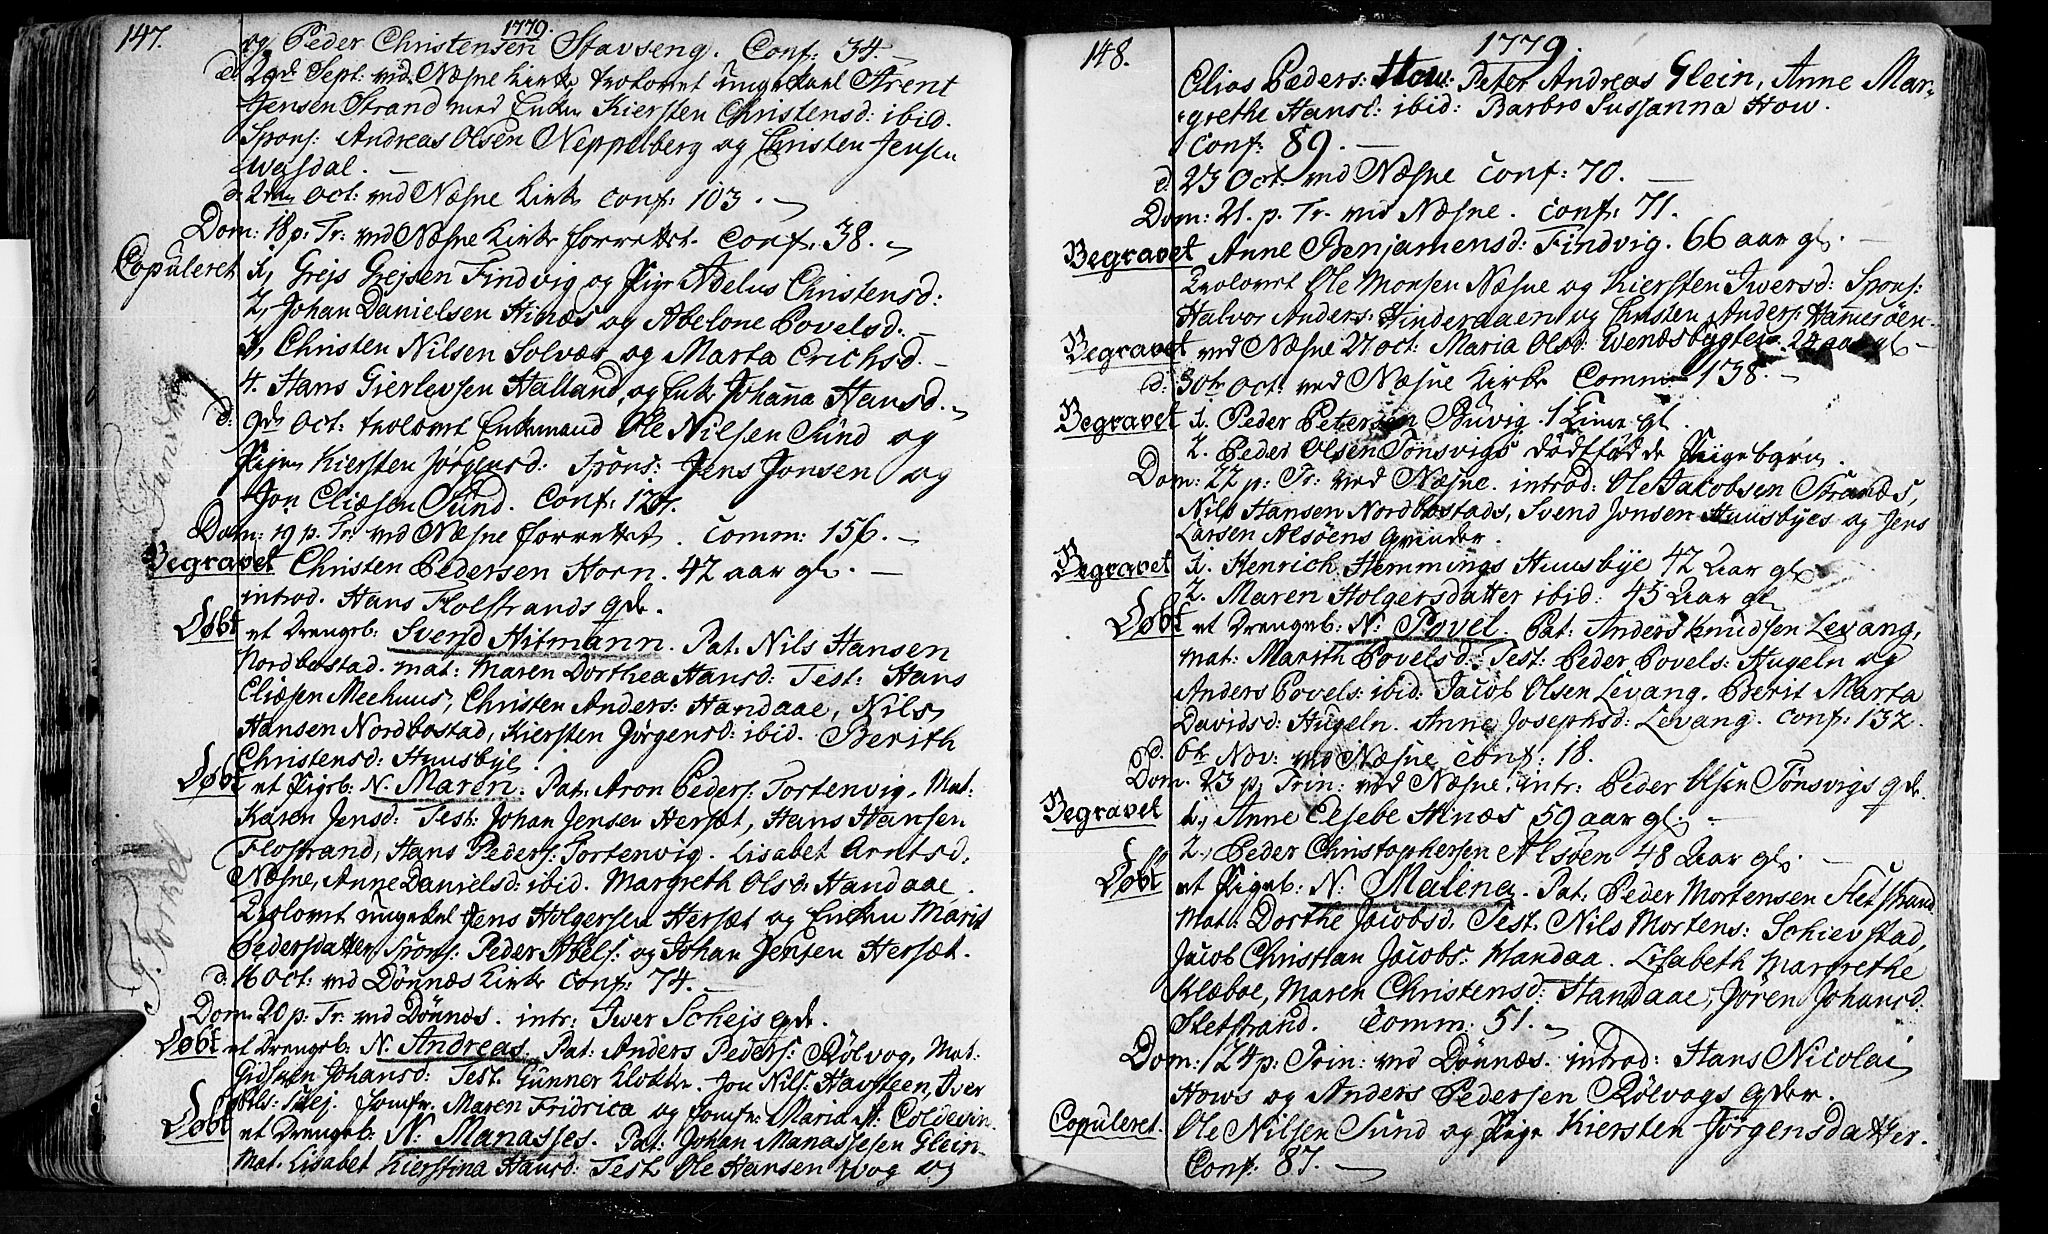 147.
1779.
og Peder Christensen Stavseng. Conf: 34.
d. 29de Sept: ved Næsne Kirke trolovet ungekarl Arent
Jensen Strand med Enken Kiersten Christensd: ibid.
Spons: Andreas Olsen Neppelberg og Christen Jensen
Wefsdal.
d. 2den Oct: ved Næsne Kirke conf: 103.
Dom: 18 p: Tr: ved Næsne Kirke forrettet. Conf: 38.
Copuleret 1, Grejs Grejsen Findvig og Pige Adelus Christensd:
2, Johan Danielsen Hinæs og Abelone Povelsd.
3, Christen Nilsen Solvær og Marta Erichsd.
4. Hans Gierlevsen Halland, og Enke Johana Hansd.
d. 9de Oct: trolovet Enkemand Ole Nilsen Sund og
Pigen Kiersten Jørgensd: Spons: Jens Jonsen og
Jon Eliæsen Sund. Conf: 124.
Dom: 19 p: Tr: ved Næsne forrettet. Comm: 156.
Begravet Christen Pedersen Horn. 42 aar gl.
introd. Hans Flostrands qde.
Døbt et Drengeb: Svend Hitmann. Pat: Nils Hansen
Nordbostad. mat: Maren Dorthea Hansd: Test: Hans
Eliæsen Meehuus, Christen Anders: Handaae, Nils
Hansen Nordbostad, Kiersten Jørgensd: ibid. Berith
Christensd: Huusbye.
Døbt et Pigeb: N. Maren. Pat: Aron Peders: Tortenvig. Mat:
Karen Jensd: Test: Johan Jensen Hersæt, Hans Hansen
Flostrand, Hans Peders: Tortenvig. Lisabet Arntsd.
Næsne, Anne Danielsd: ibid. Margreth Olsd: Handaae.
Trolovet ungekarl Jens Holgersen Hersæt og Enken Marit
Pedersdatter. Spons: Peder Abels: og Johan Jensen Hersæt.
d. 16 Oct: ved Dønnæs Kirke conf: 74.
Dom: 20 p: Tr: ved Dønnæs. intr: Iwer Schejs qde.
Døbt et Drengeb: N. Andreas. Pat: Anders Peders: Rølvog, Mat:
Johansd: Test: Gunner Klokker. Jon Nils: Havsteen, Iver
Jomfr: Maren Fridrica og Jomfr: Maria A: Coldevin.
Døbt et Drengeb: N: Manasses. Pat: Johan Manassesen Glein.
Mat: Lisabet Kierstina Hansd: Test: Ole Hansen Wog og
148.
1779.
Elias Peders: How: Peter Andreas Glein, Anne Mar-
grethe Hansd: ibid: Barbro Susanna How.
Conf: 89.
d. 23 Oct: ved Næsne Conf: 70.
Dom: 21. p. Tr. ved Næsne. Conf: 71.
Begravet Anne Benjamensd: Findvig. 66 aar gl.
Trolovet Ole Monsen Næsne og Kiersten Iwersd: Spons:
Halvor Anders: Hinderaaen og Christen Anders: Hamesøen
Begravet ved Næsne 27 Oct: Maria Olsd: 24 aar gl
d: 30te Oct: ved Næsne Kirke Comm: 138.
Begravet 1. Peder Petersen Buvig. 1 Time gl.
2. Peder Olsen Tønsvigs dødfødde Pigebarn.
Dom: 22 p: Tr: ved Næsne. introd: Ole Jakobsen Strands,
Nils Hansen Nordbostads, Svend Jonsen Huusbyes og Jens
Larsen Alsøens qvinder.
Begravet 1. Henrich Hemmings Huusbye 42 Aar gl
2. Maren Holgersdatter ibid: 45 Aar gl
Døbt et Drengeb: N: Povel. Pat: Anders Knudsen Levang,
Mat: Marith Povelsd: Test: Peder Povels: Hugeln og
Anders Povels: ibid: Jacob Olsen Levang. Berit Marta
Davidsd: Hugeln. Anne Josephsd: Levang. Conf: 132.
d. 6te Nov: ved Næsne conf: 18.
Dom: 23 p. Trin: ved Næsne, intr: Peder Olsen Tønsvigs qde.
Begravet 1., Anne Elsebe Hinæs 59 aar gl.
2., Peder Christophersen Alsøen 48 Aar gl.
Døbt et Pigeb: N: Malena. Pat: Peder Mortensen Sletstrand
Mat: Dorthe Jacobsd: Test: Nils Mortens: Schievstad,
Jacob Christian Jacobs: Handaa. Lisabeth Margrethe
Klæboe, Maren Christensd: Handaae, Jøren Johansd:
Sletstrand. Comm: 51.
Dom: 24 p: Trin: ved Dønnæs. introd: Hans Nicolai
Hows og Anders Pedersen Rølvogs qvder.
Copuleret. Ole Nilsen Sund og Pige Kiersten Jørgensdatter.
Conf: 87.